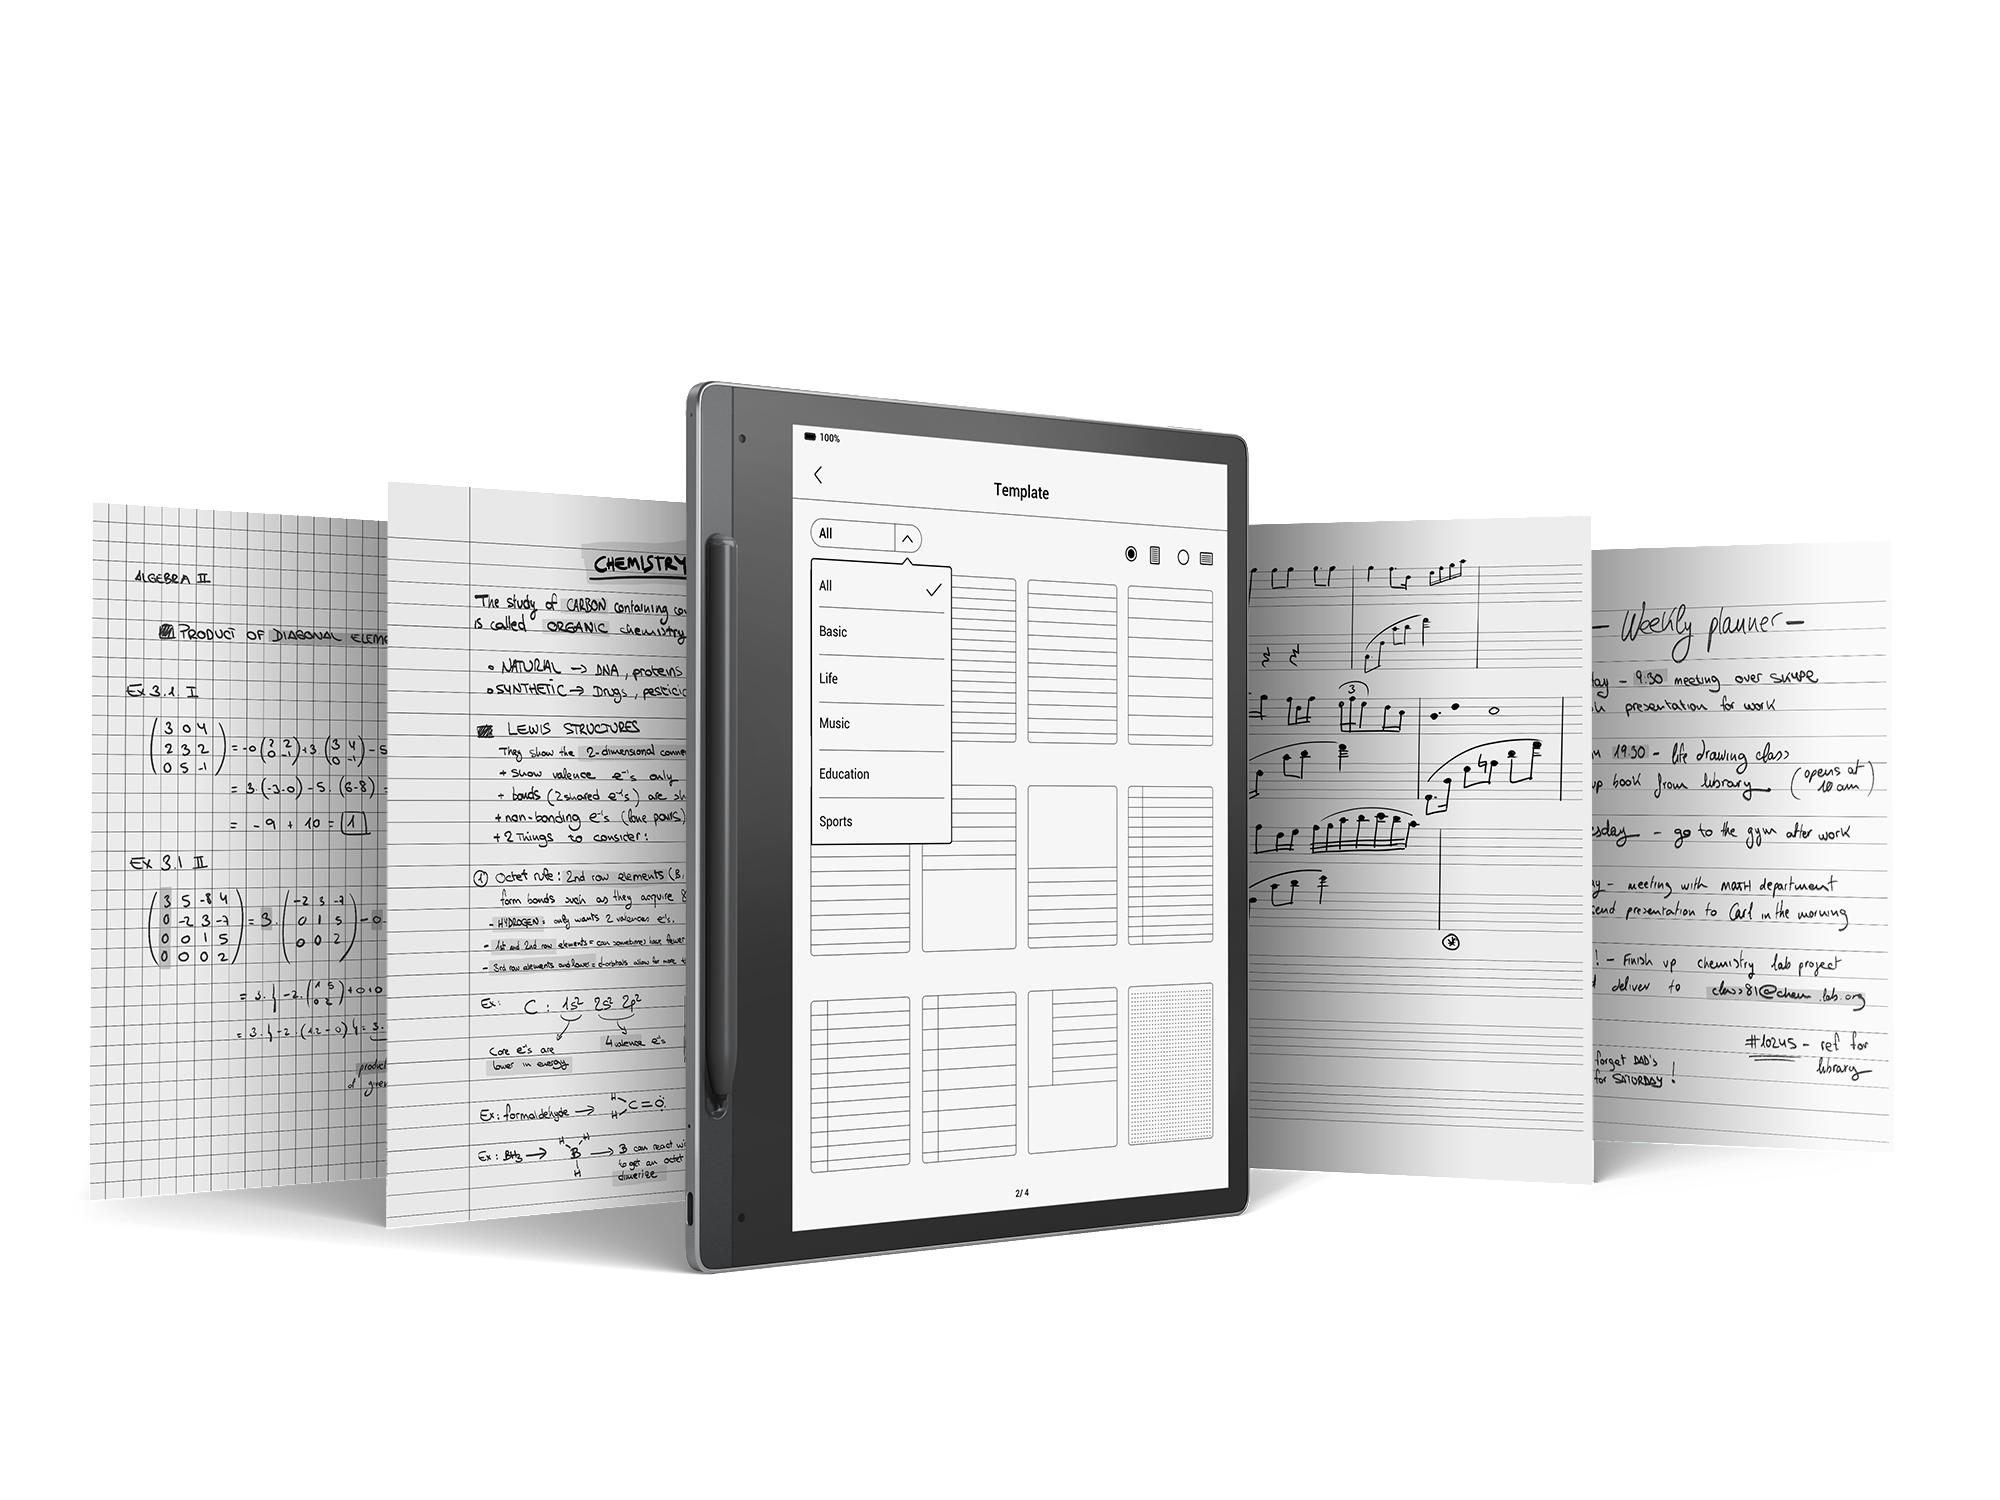 ALGEBRA II
PRODUCT OF DIAGONAL ELEME
Ex 3.1 I
3 0 4
2 3 2
0 5 -1
= -0 (2 2 0 -1) + 3 (3 4 0 -1) - 5
= 3 (-3-0) - 5. (6-8) =
= -9 + 10 = 1
Ex 3.1 II
3 5 -8 4
0 -2 3 -7
0 0 1 5
0 0 0 2
= 3.
-2 3 -7
0 1 5
0 0 2
- 0
= 3. { -2. (1 5 0 2) + 0 + 0
= 3. { -2. (1.2 - 0) } = 3.
product
of given
CHEMISTRY
The study of CARBON containing co
is called ORGANIC chemistry
• NATURAL → DNA, proteins
• SYNTHETIC → Drugs, pesticid
LEWIS STRUCTURES
They show the 2-dimensional conne
+ show valence e⁻'s only
+ bonds (2 shared e⁻'s) are sh
+ non-bonding e⁻'s (lone pairs)
+ 2 Things to consider:
1 Octet rule: 2nd row elements (B,
form bonds such as they acquire 8
- HYDROGEN: only wants 2 valences e⁻'s.
- 1st and 2nd row elements = can sometimes have fewer
- 3rd row elements and lower = d-orbitals allow for more t
Ex: C : 1s² 2s² 2p²
Core e⁻'s are
lower in energy
4 valence e⁻'s
Ex: formaldehyde → H H C=O
Ex: BH3 → H H B H → B can react wi
to get an octet
dimerize
100%
Template
All
All
Basic
Life
Music
Education
Sports
2/4
3
- Weekly planner -
ay - 9:30 meeting over SKYPE
h presentation for work
19:30 - life drawing class
up book from library (opens at
10 am)
sday - go to the gym after work
ay - meeting with MATH department
send presentation to Carl in the morning
! - Finish up chemistry lab project
d deliver to class81@chem.lab.org
#10245 - ref for
library
forget DAD's
for SATURDAY!